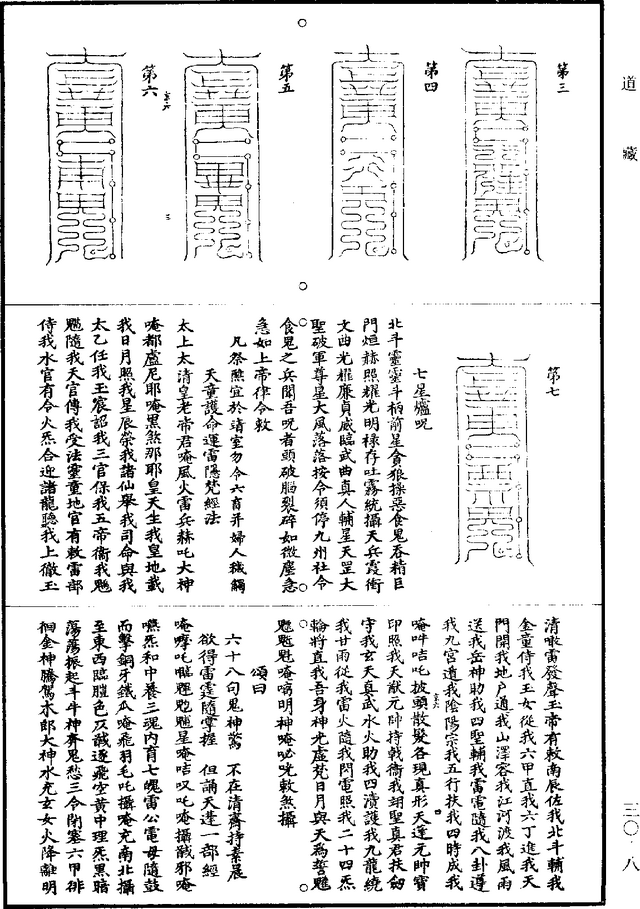 道藏
三〇·八
第三
第四
第五
第六
第七
七星爐呪
北斗靈靈斗柄前星貪狼操惡食鬼吞精巨
門烜赫照耀光明祿存吐霧統攝天兵霞衝
文曲光耀廉貞威臨武曲真人輔星天罡大
聖破軍尊星大風落落按令須停九州社令
食鬼之兵聞吾呪者頭破腦裂碎如微塵急
急如上帝律令敕
凡祭醮宜於靖室勿令六畜并婦人穢觸
天童護命運雷隱梵經法
太上太清皇老帝君唵風火雷兵赫吒大神
唵都盧尼耶唵黑煞那耶皇天生我皇地載
我日月照我星辰榮我諸仙舉我司命與我
太乙任我玉宸詔我三官保我五帝衛我
隨我天官傳我受法靈童地官有敕雷部
侍我水官有令火炁合迎諸龍聽我上徹玉
清嗽雷發聲玉帝有敕南辰佐我北斗輔我
金童侍我玉女從我六甲直我六丁進我天
門開我地戶通我山澤容我江河渡我風雨
送我岳神助我四聖輔我雷電隨我八卦遵
我九宮遁我陰陽宗我五行扶我四時成我
唵吽咭吒披頭散髮各現真形天蓬元帥寶
印照我天猷元帥持戟衛我翊聖真君扶劍
守我玄天真武水火助我四瀆護我九龍繞
我甘雨從我雷火隨我閃電照我二十四炁
輪將直我吾身神光虛梵日月與天為誓
唵嗬明神唵敕煞攝
頌曰
六十八句鬼神驚 不在清齋持素晨
欲得雷霆隨掌握 但誦天蓬一部經
唵嚤吒星唵咭叉吒唵攝馘邪唵
炁和中養三魂內育七魄雷公電母隨鼓
而擊銅牙鐵爪唵飛羽毛吒攝唵充南北攝
至東西臨色及馘遂飛空黃中理炁黑暗
蕩蕩振起斗牛神奔鬼愁三令閉塞六甲徘
徊金神騰駕木郎大神水充玄女火降離明